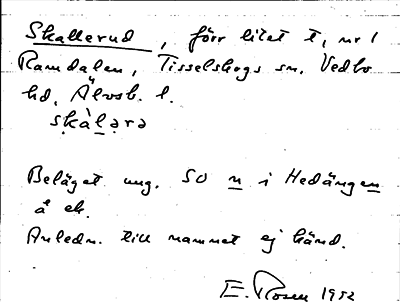 Skallerud, förr litet t, nr 1
Ramdalen, Tisselskogs sn, Vedbo
hd, Älvsb. l.
skàlərə
Beläget ung. SO n i Hedängen
å ek.
Anledn. till namnet ej känd.
E. Rosen 1952